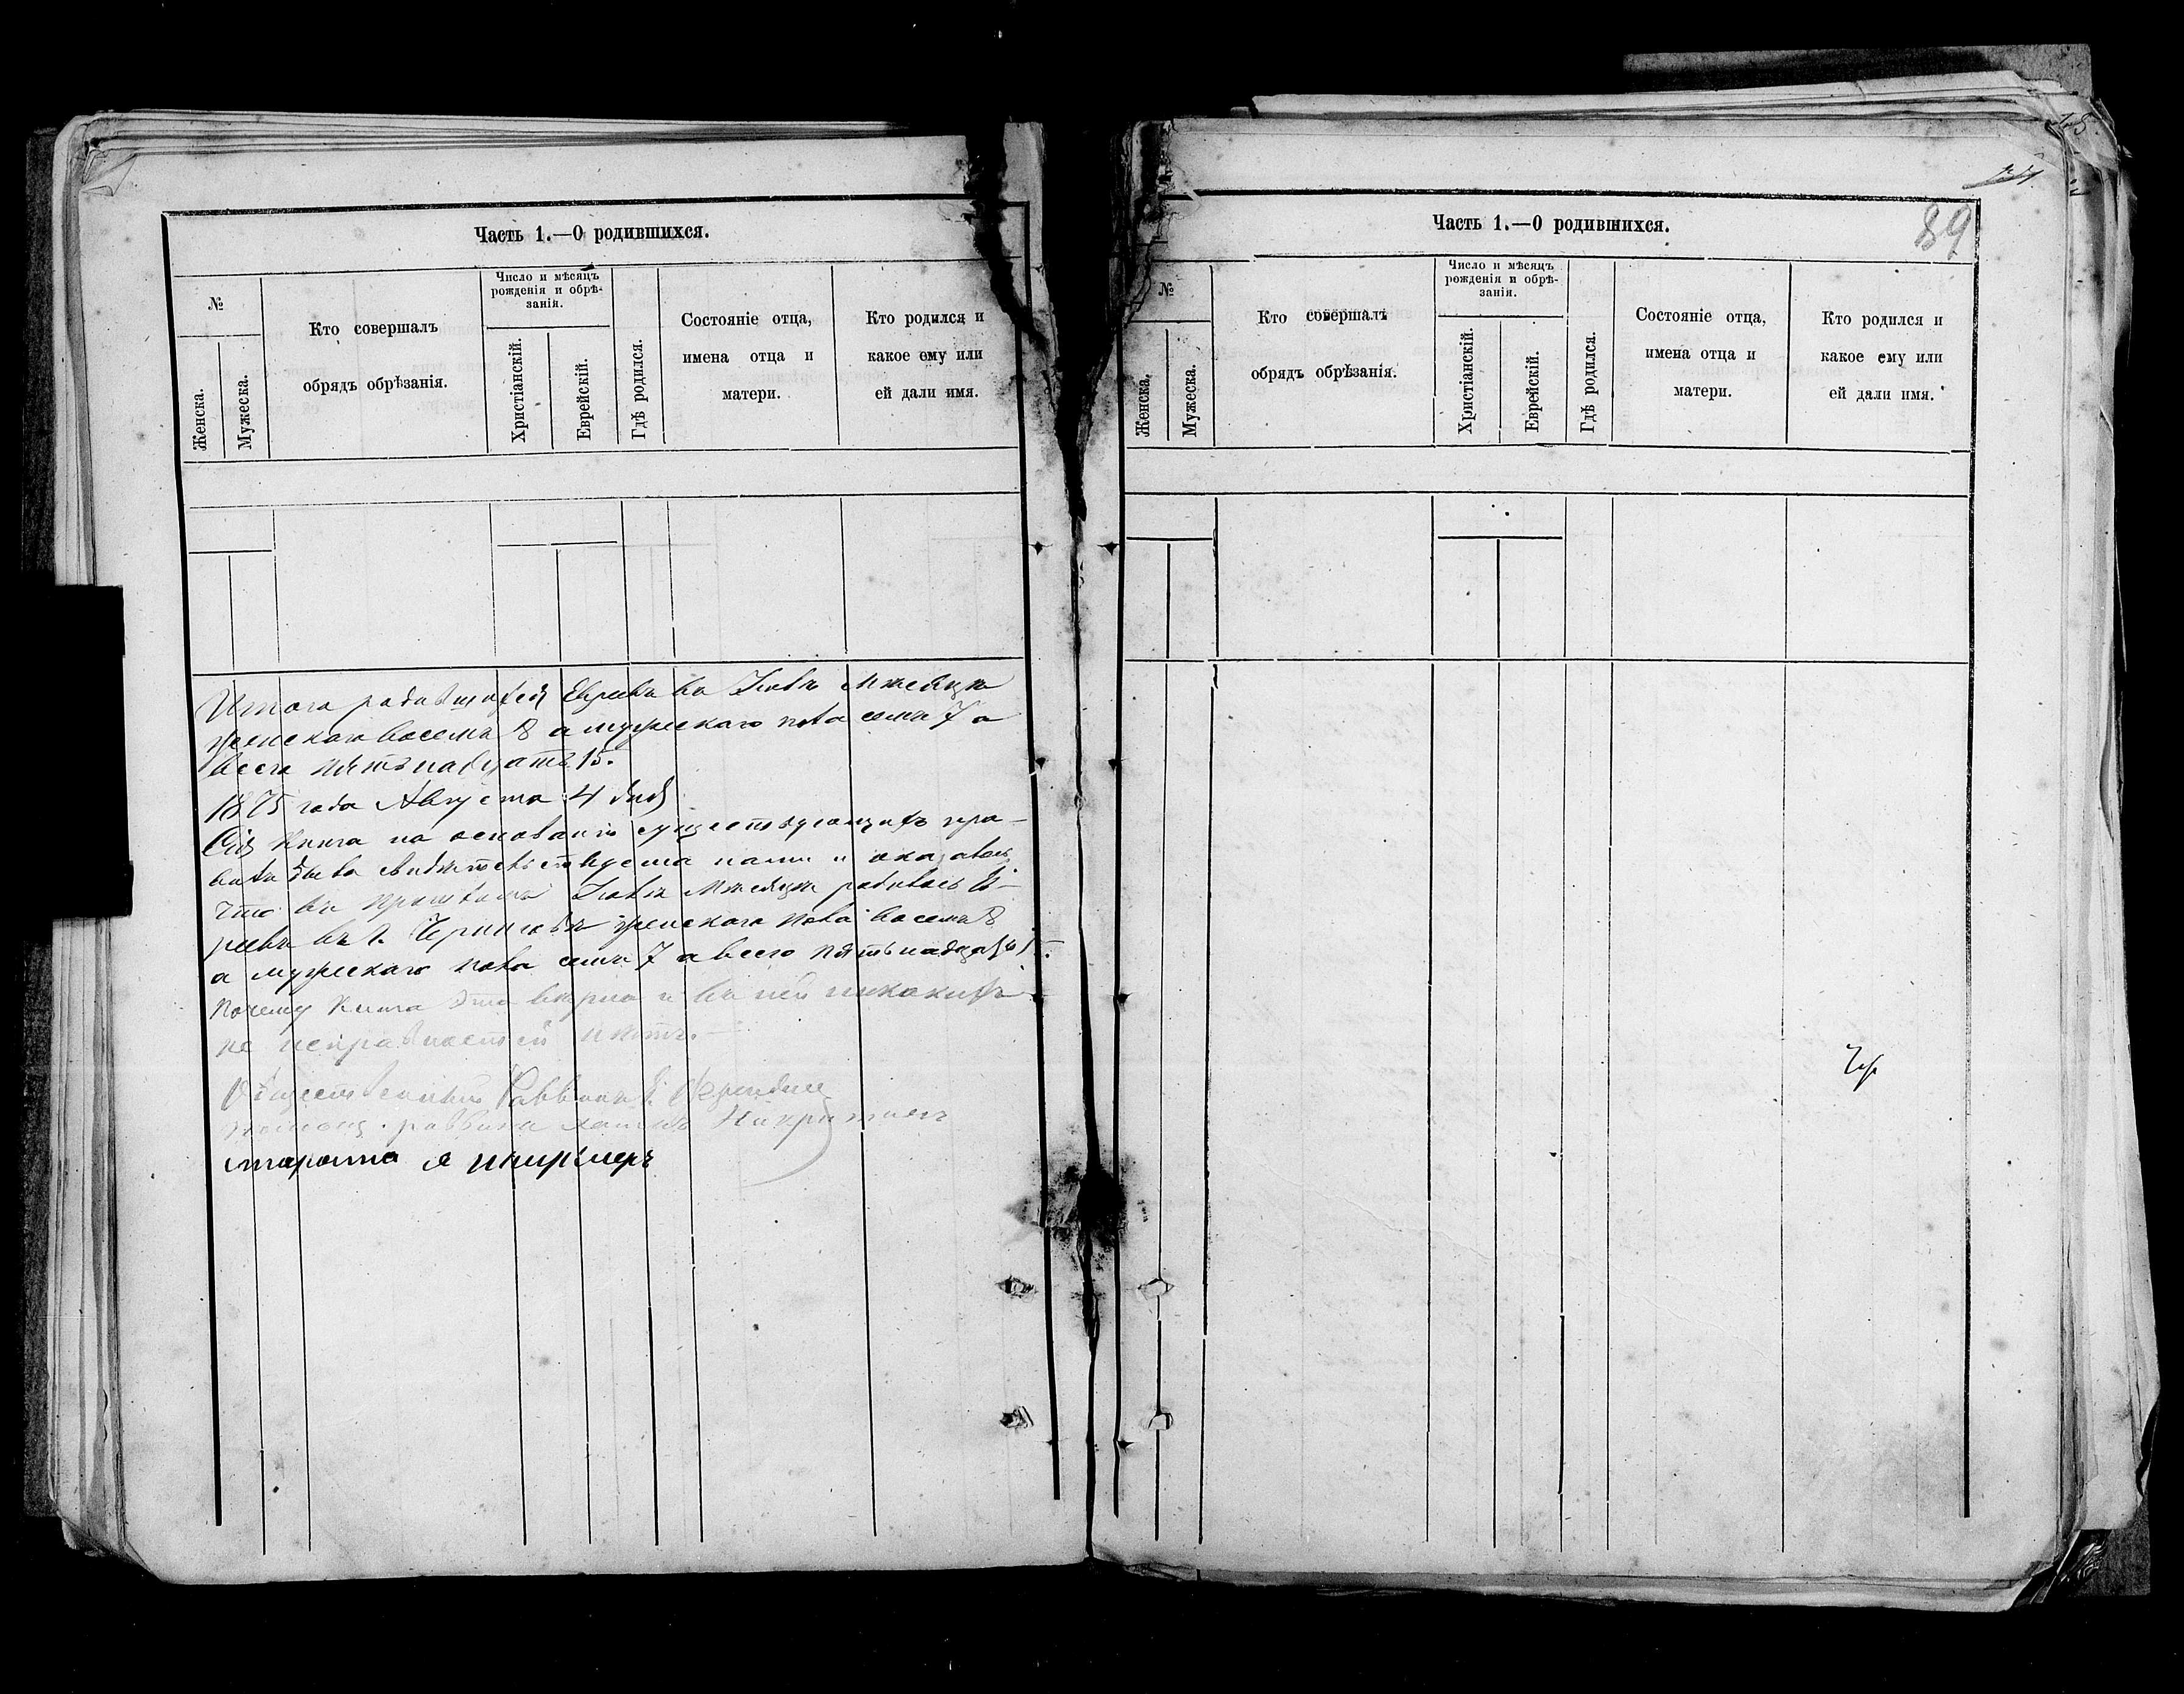 Часть 1.—О родившихся.
№
Женска.
Мужеска.
Кто совершалъ
обрядъ обрѣзанія.
Число и мѣсяцъ
рожденія и обрѣ-
занія.
Христіанскій.
Еврейскій.
Гдѣ родился.
Состояніе отца,
имена отца и
матери.
Кто родился и
какое ему или
ей дали имя.
Итого родившихся Евреевъ въ Іюлѣ Мѣсяцѣ
женскаго восемь 8 а мужескаго пола семь 7 а
всего пятьнадцать 15.
1875 года Августа 4 дня
Сія Книга на основаніи существующихъ пра-
вилъ была свидѣтельствуема нами и оказалось
что въ прошломъ Іюлѣ Мѣсяцѣ родилось Ев-
реевъ въ г. Черниговѣ женскаго пола восемь 8
а мужескаго пола семь 7 а всего пятьнадцать 15.
почему Книга эта вѣрна и въ ней никакихъ
не исправностей нѣтъ.
Общественный Раввинъ
помощ. раввина
староста
Часть 1.—О родившихся.
89
№
Женска.
Мужеска.
Кто совершалъ
обрядъ обрѣзанія.
Число и мѣсяцъ
рожденія и обрѣ-
занія.
Христіанскій.
Еврейскій.
Гдѣ родился.
Состояніе отца,
имена отца и
матери.
Кто родился и
какое ему или
ей дали имя.